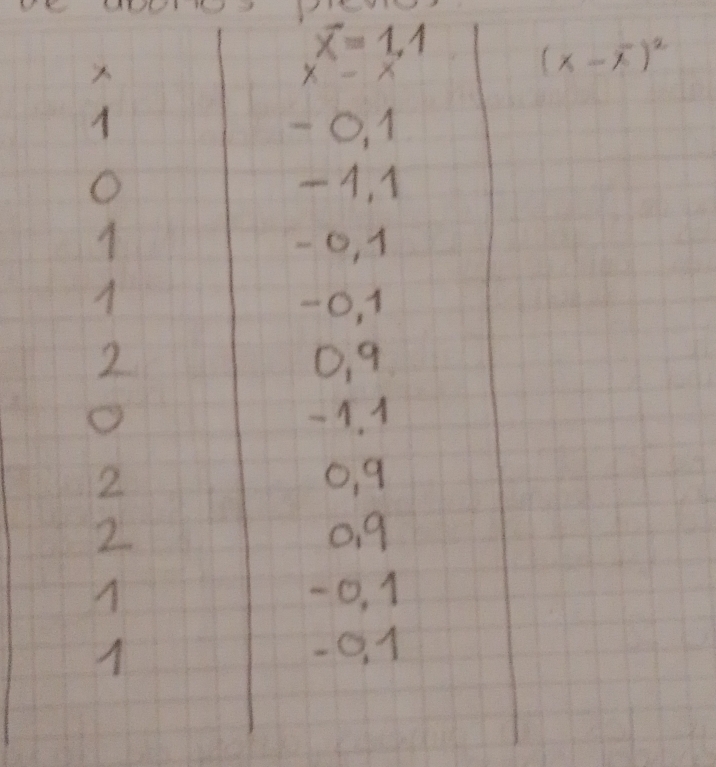 de abortos previos
x̄ = 1,1
x x - x̄ (x - x̄)²
1 - 0,1
0 - 1,1
1 - 0,1
1 - 0,1
2 0,9
0 - 1,1
2 0,9
2 0,9
1 - 0,1
1 - 0,1